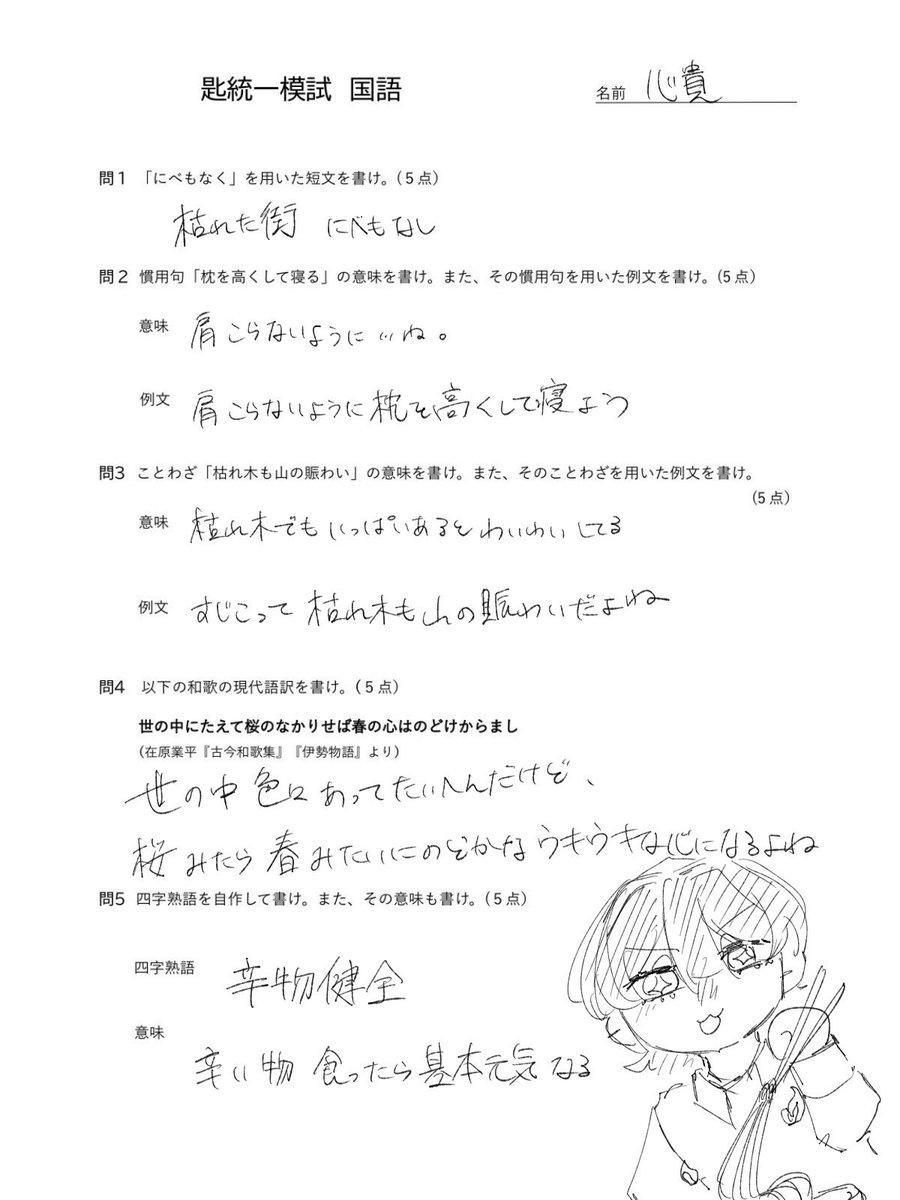 匙統一模試 国語
名前 心貴
問1 「にべもなく」を用いた短文を書け。(5点)
枯れた街 にべもなし
問2 慣用句「枕を高くして寝る」の意味を書け。また、その慣用句を用いた例文を書け。(5点)
意味 肩こらないように…ね。
例文 肩こらないように枕を高くして寝よう
問3 ことわざ「枯れ木も山の賑わい」の意味を書け。また、そのことわざを用いた例文を書け。
(5点)
意味 枯れ木でもいっぱいあるとわいわいしてる
例文 すじこって枯れ木も山の賑わいだよね
問4 以下の和歌の現代語訳を書け。(5点)
世の中にたえて桜のなかりせば春の心はのどけからまし
(在原業平『古今和歌集』『伊勢物語』より)
世の中色々あってたいへんだけど、
桜みたら春みたいにのどかなウキウキな心になるよね
問5 四字熟語を自作して書け。また、その意味も書け。(5点)
四字熟語 辛物健全
意味
辛い物 食ったら基本元気なる